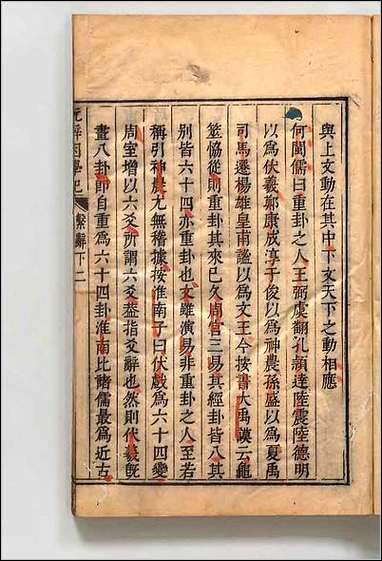 與上文動在其中下文天下之動相應
何閩儒曰重卦之人王弼虞翻孔穎達陸震陸德明
以為伏羲鄭康成淳于俊以為神農孫盛以為夏禹
司馬遷楊雄皇甫謐以為文王今按書大禹謨云龜
筮恊從則重卦其來已久周官三易其經卦皆八其
別皆六十四亦重卦也文雖演易非重卦之人至若
稱引神農尤無稽據按淮南子曰伏戲為六十四變
周室增以六爻所謂六爻葢指爻辭也然則伏羲既
畫八卦即自重為六十四卦淮南比諸儒最為近古
繫辭下二